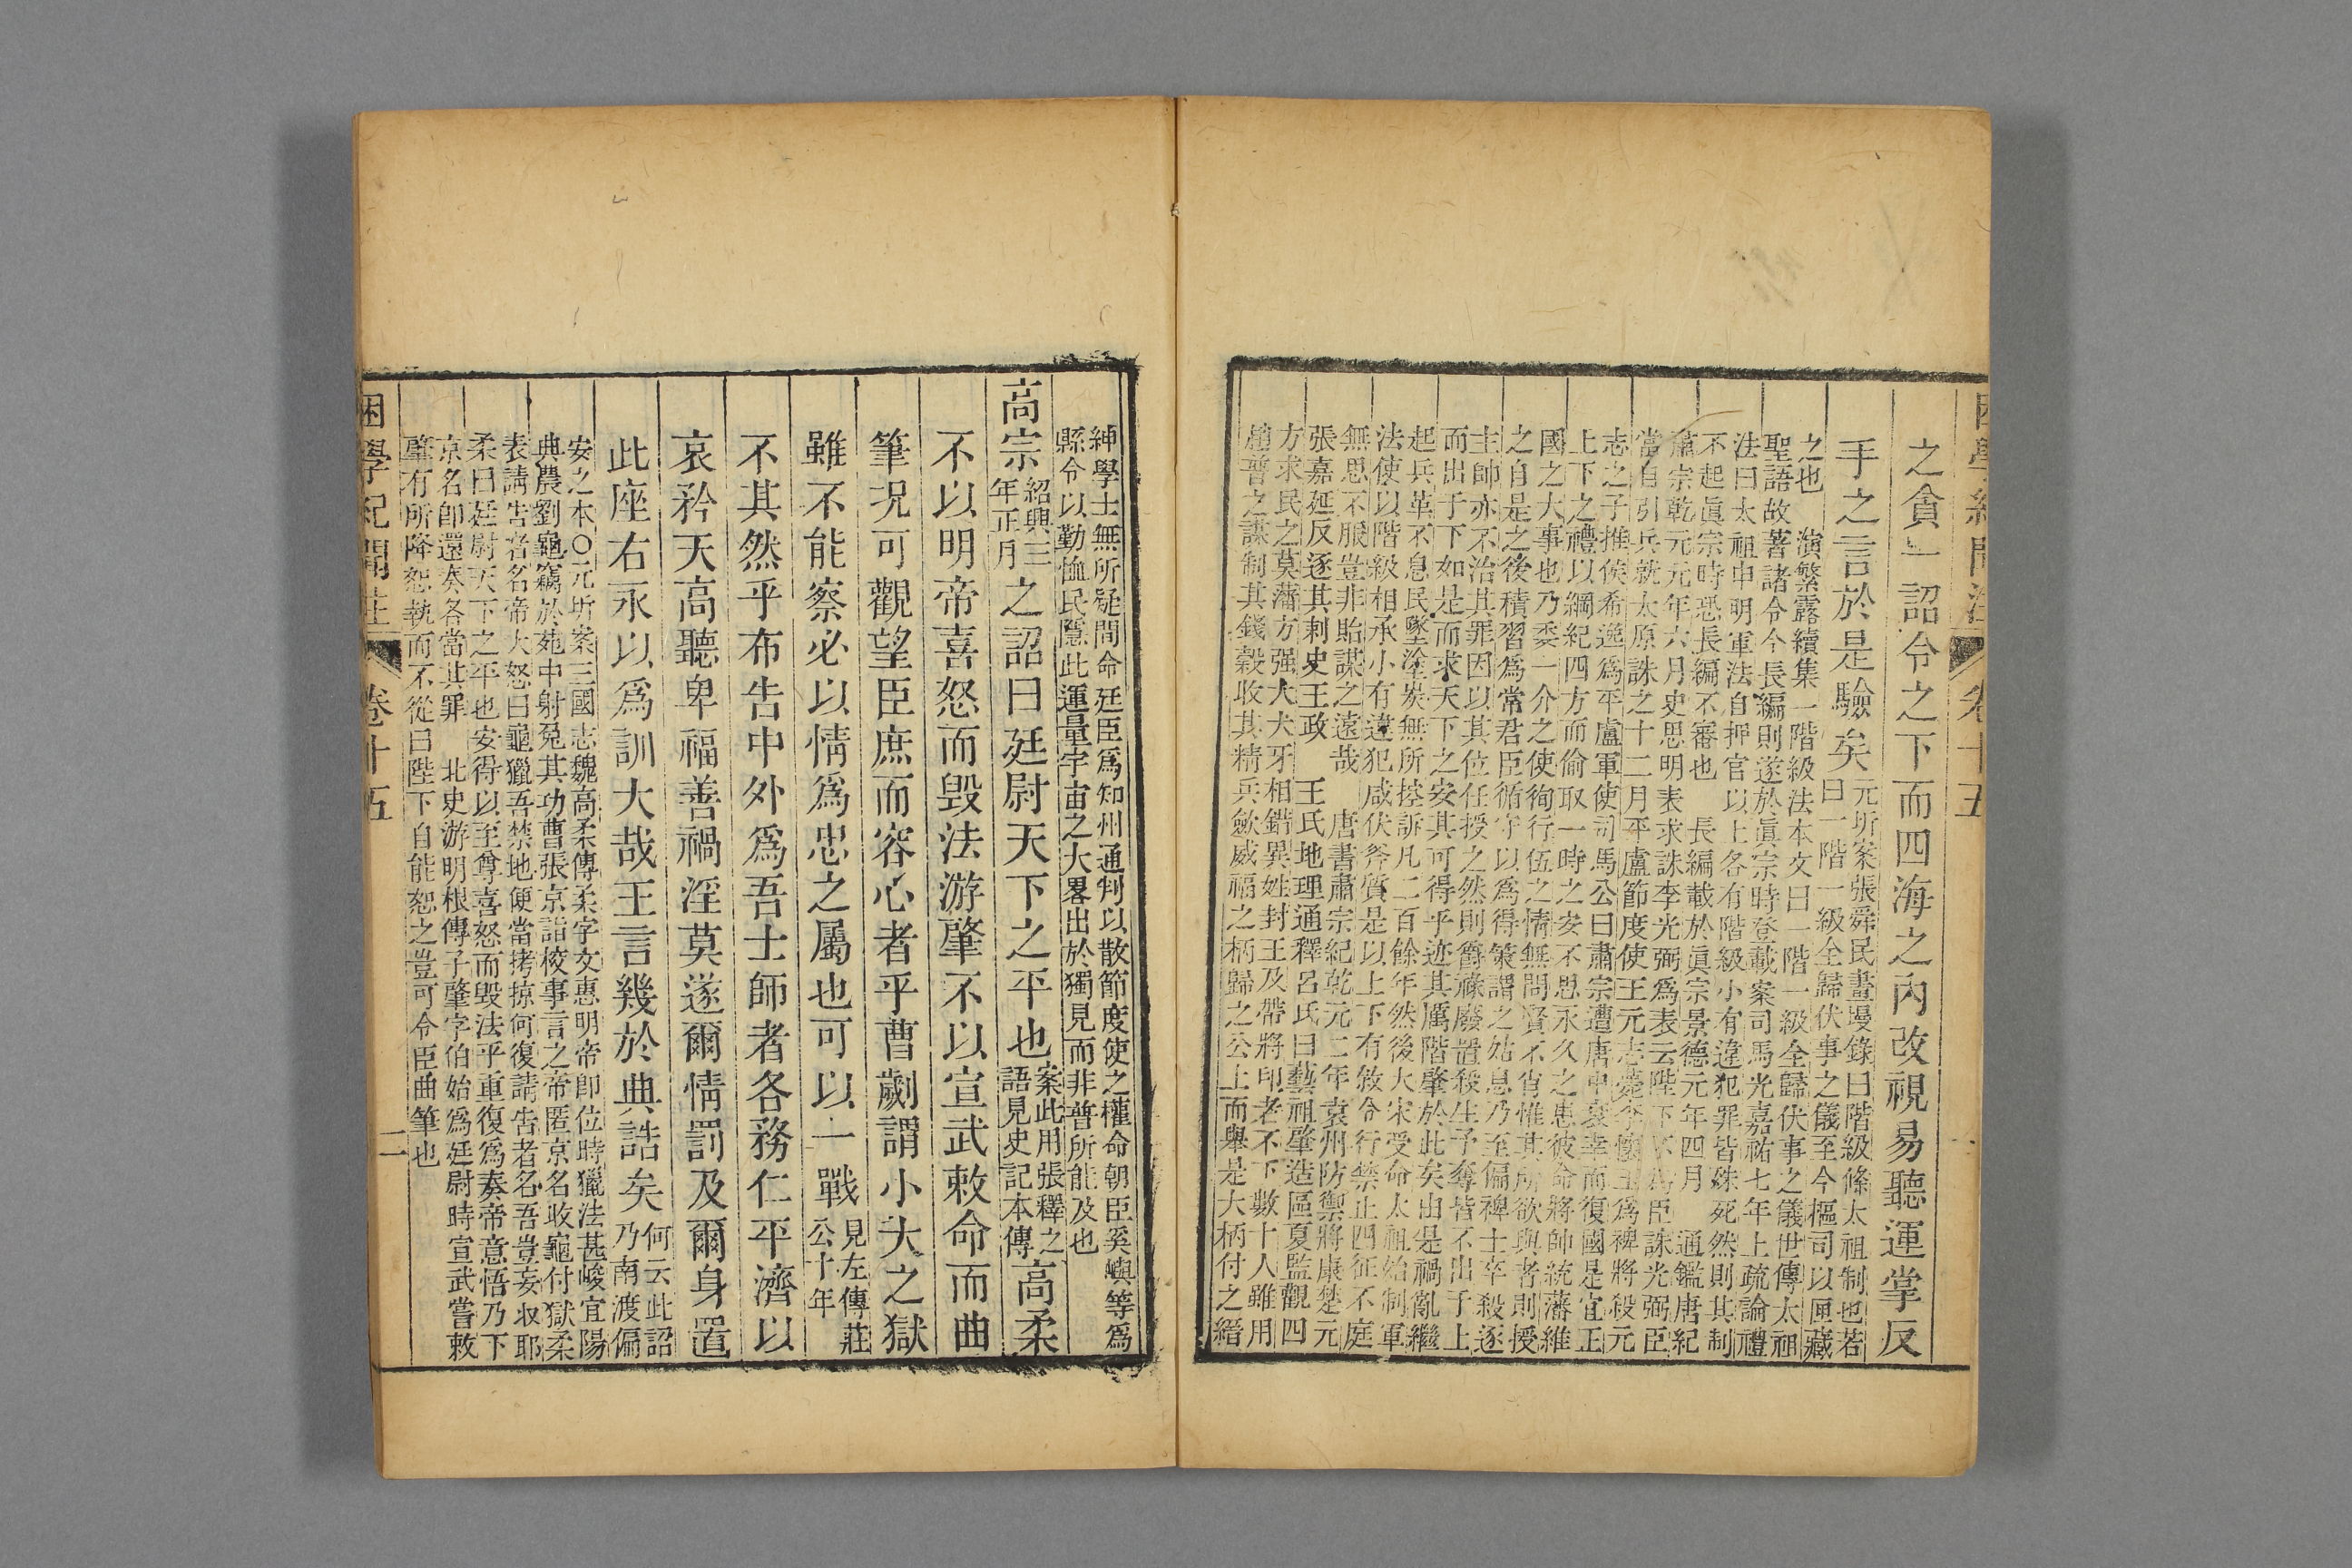 困學紀聞注 卷十五
之貪一詔令之下而四海之內改視易聽運掌反
手之言於是驗矣元圻案張舜民畫墁錄曰階級條太祖制也若
曰一階一級全歸伏事之儀至今樞司以匣藏
之也　演繁露續集一階級法本文曰一階一級全歸伏事之儀世傳太祖
聖語故著諸令今長編則遂於眞宗時登載案司馬光嘉祐七年上疏論禮
法曰太祖申明軍法自押官以上各有階級小有違犯罪皆殊死然則其制
不起眞宗時恐長編不審也　長編載於眞宗景德元年四月　通鑑唐紀
肅宗乾元元年六月史思明表求誅李光弼爲表云陛下不爲臣誅光弼臣
當自引兵就太原誅之十二月平盧節度使王元志薨李懷玉爲裨將殺元
志之子推侯希逸爲平盧軍使司馬公曰肅宗遭唐中衰幸而復國是宜正
上下之禮以綱紀四方而偷取一時之安不思永久之患彼命將帥統藩維
國之大事也乃委一介之使徇行伍之情無問賢不肖惟其所欲與者則授
之自是之後積習爲常君臣循守以爲得策謂之姑息乃至偏裨士卒殺逐
主帥亦不治其罪因以其位任授之然則爵祿廢置殺生予奪皆不出于上
而出于下如是而求天下之安其可得乎迹其厲階肇於此矣由是禍亂繼
起兵革不息民墜塗炭無所控訴凡二百餘年然後大宋受命太祖始制軍
法使以階級相承小有違犯咸伏斧質是以上下有敘令行禁止四征不庭
無思不服豈非貽謀之遠哉　唐書肅宗紀乾元二年袁州防禦將康楚元
張嘉延反逐其刺史王政　王氏地理通釋呂氏曰藝祖肇造區夏監觀四
方求民之莫藩方强大犬牙相錯異姓封王及帶將印者不下數十人雖用
趙普之謀制其錢穀收其精兵斂威福之柄歸之公上而舉是大柄付之縉
紳學士無所疑間命廷臣爲知州通判以散節度使之權命朝臣奚嶼等爲
縣令以勤恤民隱此運量宇宙之大畧出於獨見而非普所能及也
高宗紹興三年正月之詔曰廷尉天下之平也案此用張釋之語見史記本傳高柔
不以明帝喜怒而毀法游肇不以宣武敕命而曲
筆況可觀望臣庶而容心者乎曹劌謂小大之獄
雖不能察必以情爲忠之屬也可以一戰見左傳莊公十年
不其然乎布告中外爲吾士師者各務仁平濟以
哀矜天高聽卑福善禍淫莫遂爾情罰及爾身置
此座右永以爲訓大哉王言幾於典誥矣何云此詔乃南渡偏
安之本〇元圻案三國志魏高柔傳柔字文惠明帝卽位時獵法甚峻宜陽
典農劉龜竊於苑中射兔其功曹張京詣校事言之帝匿京名收龜付獄柔
表請告者名帝大怒曰龜獵吾禁地便當拷掠何復請告者名吾豈妄收耶
柔曰廷尉天下之平也安得以至尊喜怒而毀法乎重復爲奏帝意悟乃下
京名卽還奏各當其罪　北史游明根傳子肇字伯始爲廷尉時宣武嘗敕
肇有所降恕執而不從曰陛下自能恕之豈可令臣曲筆也
困學紀聞注　卷十五　二